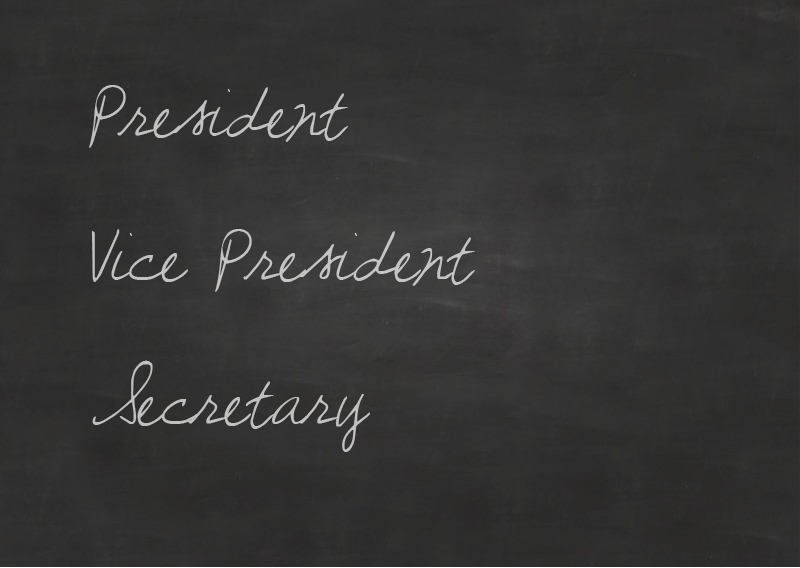 President
Vice President
Secretary